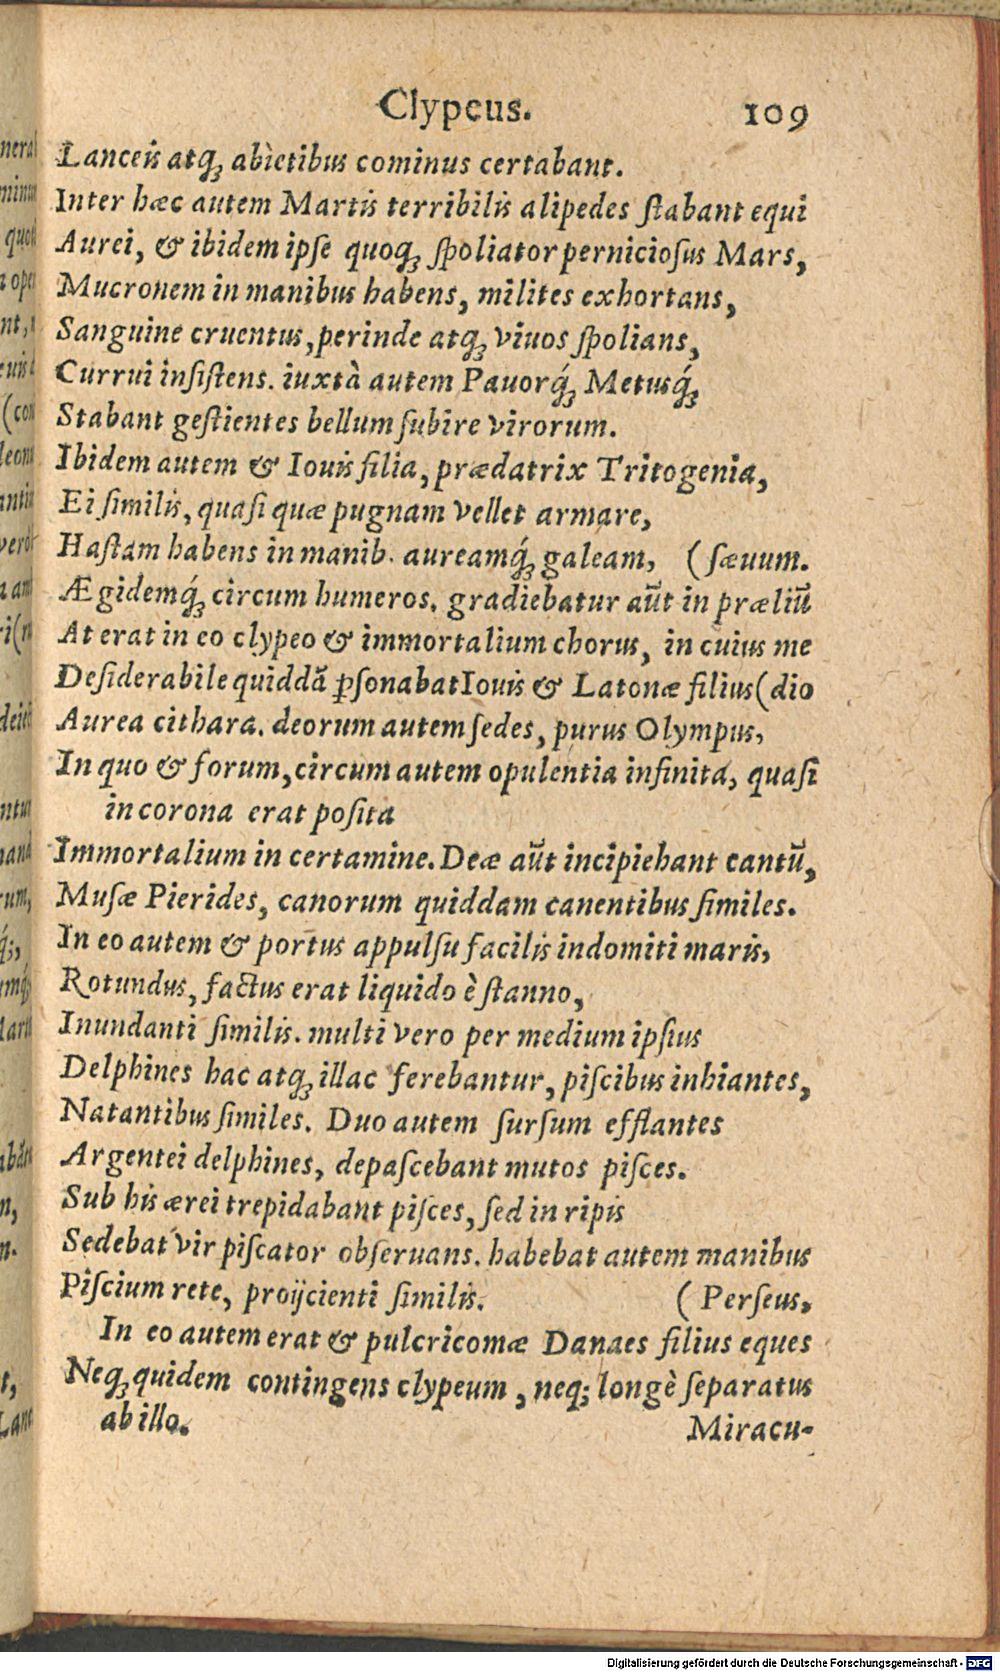 Clypeus. 109
Lanceis atq́ꝫ abietibus cominus certabant.
Inter hæc autem Martis terribilis alipedes ſtabant equi
Aurei, & ibidem ipſe quoqꝫ ſpoliator pernicioſus Mars,
Mucronem in manibus habens, milites exhortans,
Sanguine cruentus, perinde atqꝫ viuos ſpolians,
Currui inſiſtens. iuxtà autem Pauorq́ꝫ Metusq́ꝫ
Stabant geſtientes bellum ſubire virorum.
Ibidem autem & Iouis filia, prædatrix Tritogenia,
Ei ſimilis, quaſi quæ pugnam vellet armare,
Haſtam habens in manib. aureamq́ꝫ galeam, (ſæuum.
Ægidemq́ꝫ circum humeros. gradiebatur aūt in præliū
At erat in eo clypeo & immortalium chorus, in cuius me
Deſiderabile quiddā ꝑſonabat Iouis & Latonæ filius (dio
Aurea cithara. deorum autem ſedes, purus Olympus,
In quo & forum, circum autem opulentia infinita, quaſi
in corona erat poſita
Immortalium in certamine. Deæ aūt incipiebant cantū,
Muſæ Pierides, canorum quiddam canentibus ſimiles.
In eo autem & portus appulſu facilis indomiti maris,
Rotundus, factus erat liquido è ſtanno,
Inundanti ſimilis. multi vero per medium ipſius
Delphines hac atqꝫ illac ferebantur, piſcibus inhiantes,
Natantibus ſimiles. Duo autem ſurſum efflantes
Argentei delphines, depaſcebant mutos piſces.
Sub his ærei trepidabant piſces, ſed in ripis
Sedebat vir piſcator obſeruans. habebat autem manibus
Piſcium rete, proijcienti ſimilis. (Perſeus,
In eo autem erat & pulcricomæ Danaes filius eques
Neqꝫ quidem contingens clypeum, neq; longè ſeparatus
ab illo. Miracu-
Digitalisierung gefördert durch die Deutsche Forschungsgemeinschaft - DFG